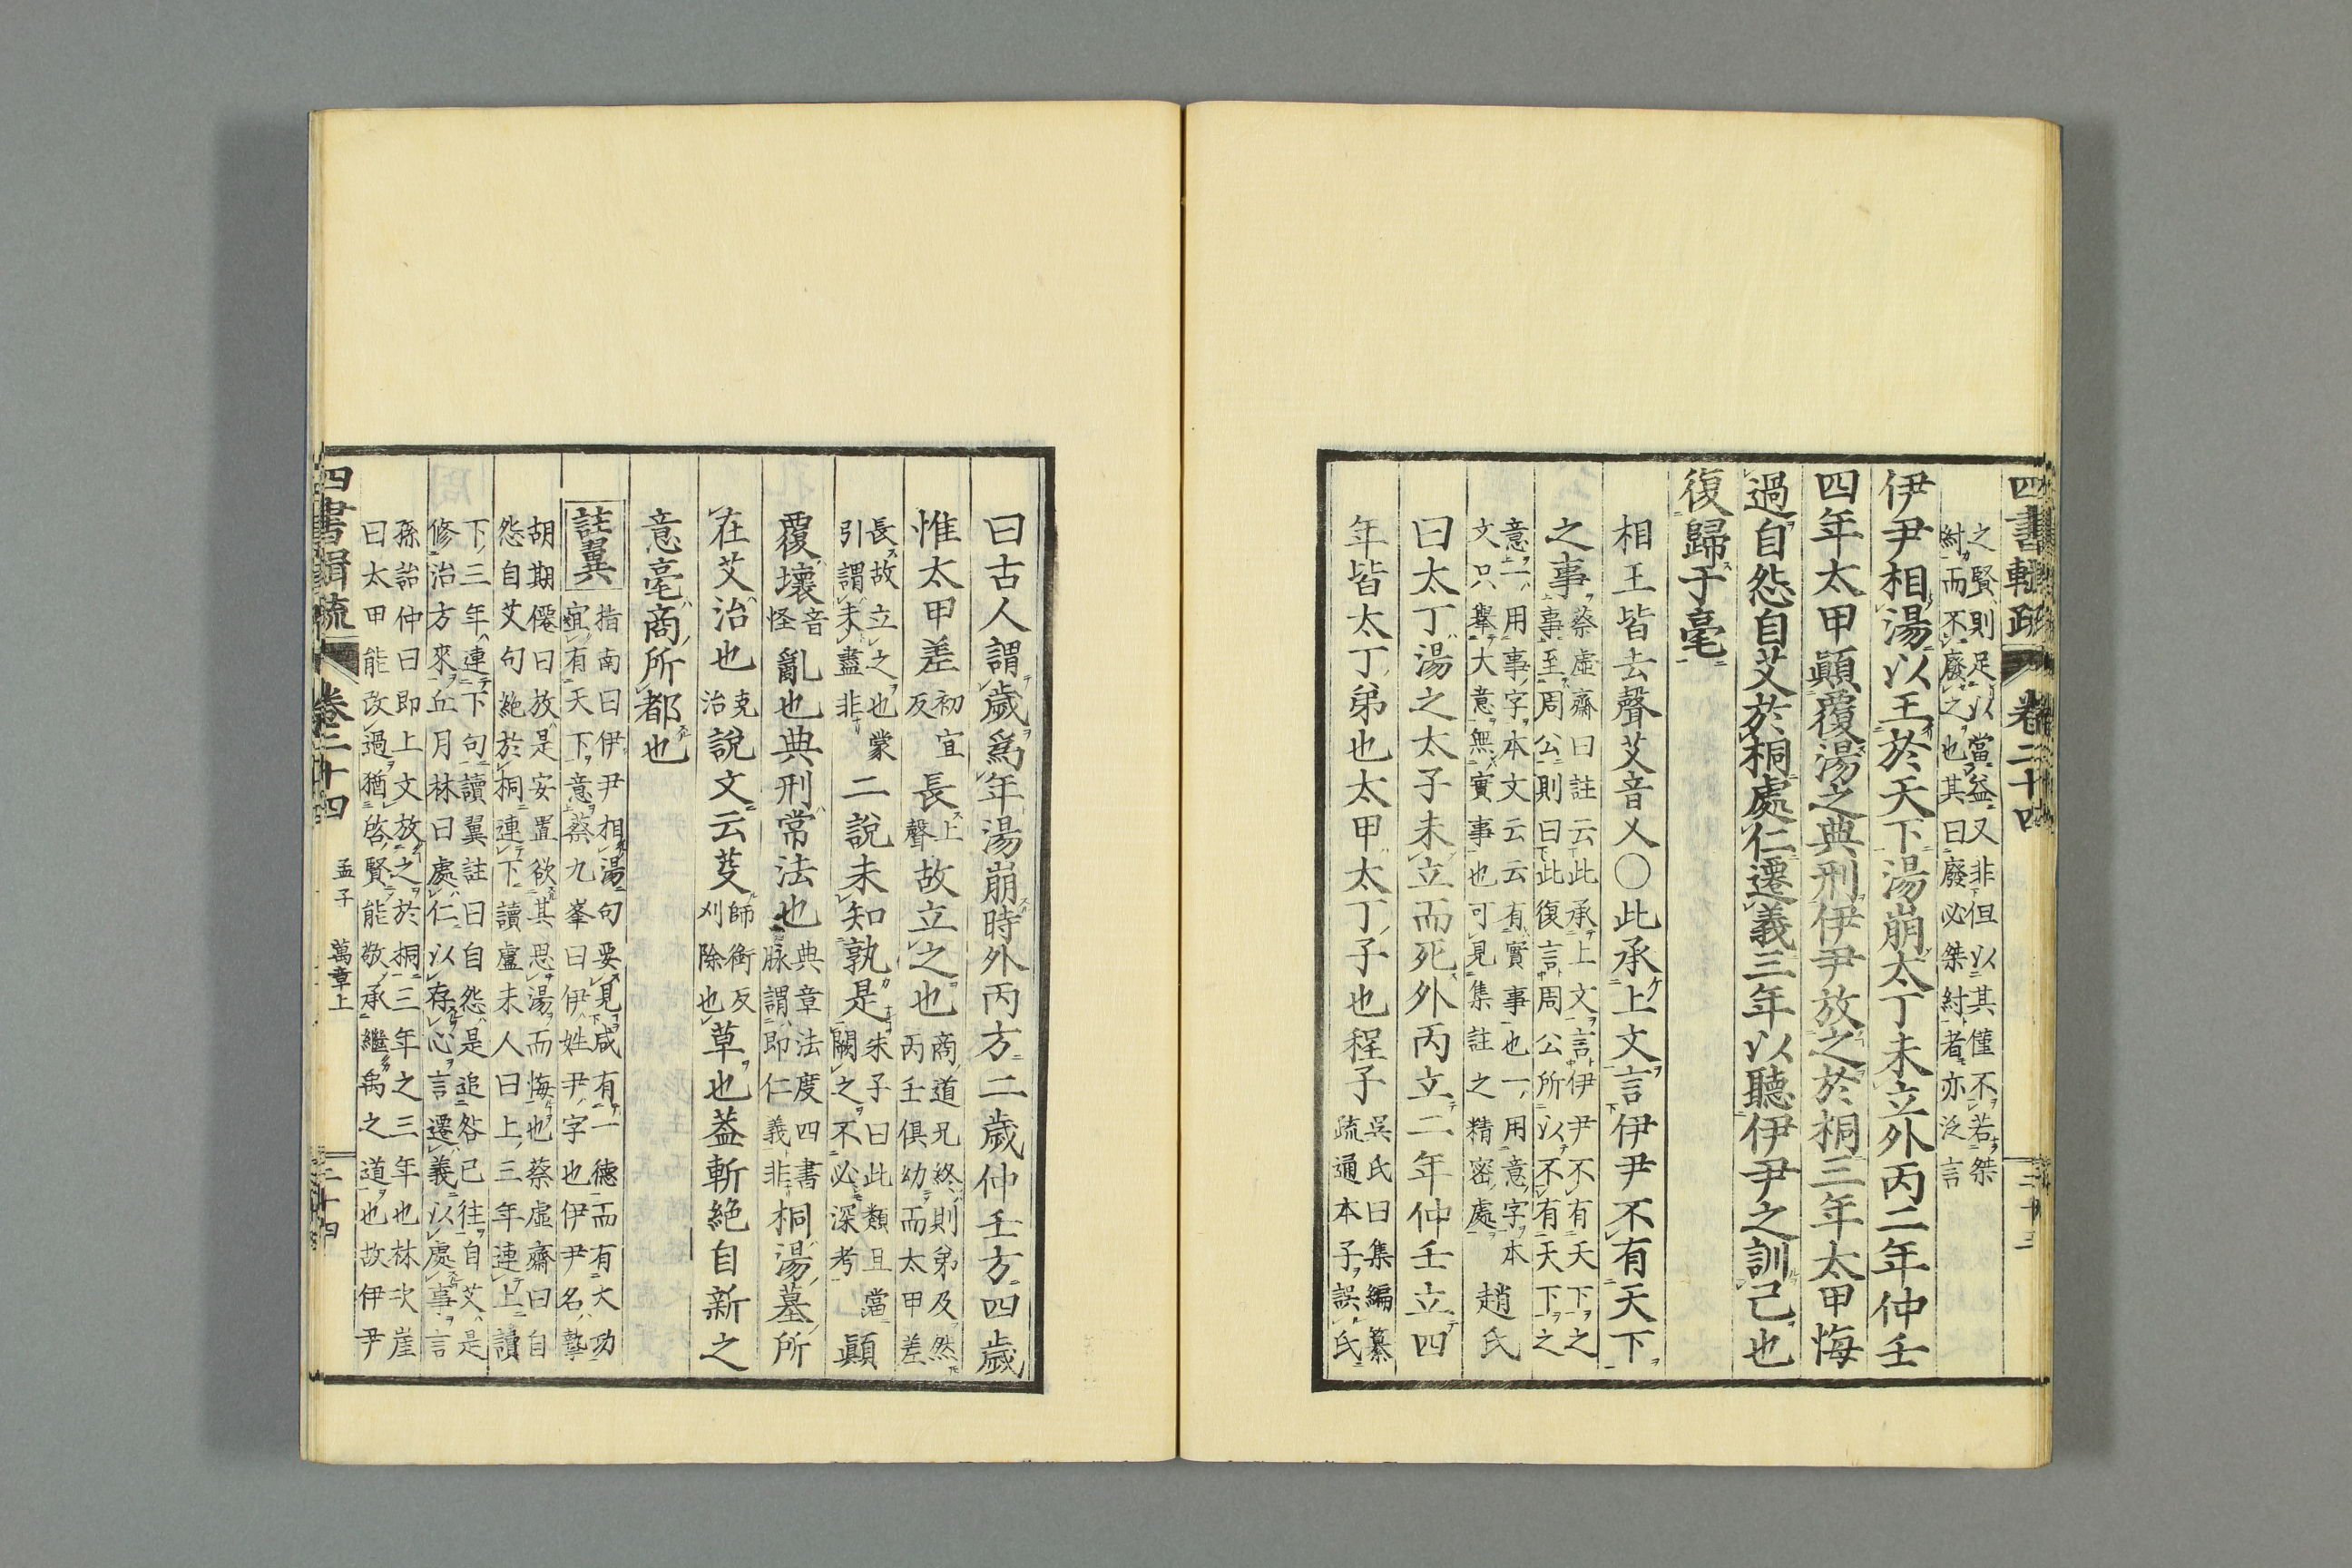 四書輯疏 卷二十四 二十三
之賢則足以當益又非但以其僅不若桀
紂而不廢之也其曰廢必桀紂者亦泛言
伊尹相湯以王於天下湯崩太丁未立外丙二年仲壬
四年太甲顚覆湯之典刑伊尹放之於桐三年太甲悔
過自怨自艾於桐處仁遷義三年以聽伊尹之訓己也
復歸于亳
相王皆去聲艾音乂○此承上文言伊尹不有天下
之事
蔡虛齋曰註云此承上文言伊尹不有天下之
事至周公則曰此復言周公所以不有天下之
意一用事字本文云云有實事也一用意字本
文只舉大意無實事也可見集註之精密處
趙氏
曰太丁湯之太子未立而死外丙立二年仲壬立四
年皆太丁弟也太甲太丁子也程子
吳氏曰集編纂
疏通本子誤氏
曰古人謂歲爲年湯崩時外丙方二歲仲壬方四歲
惟太甲差
初宜
反
長
上
聲
故立之也
商道兄終則弟及然
丙壬俱幼而太甲差
長故立之也蒙
引謂未盡非
二說未知孰是
朱子曰此類且當
闕之不必深考
顚
覆壞
音
怪
亂也典刑常法也
典章法度四書
脉謂即仁義非
桐湯墓所
在艾治也
克
治
說文云芟
師銜反
刈除也
草也蓋斬絶自新之
意亳商所都也
註翼
指南曰伊尹相湯句要見咸有一德而有大功
宜有天下意蔡九峯曰伊姓尹字也伊尹名摯
胡期僊曰放是安置欲其思湯而悔也蔡虛齋曰自
怨自艾句絶於桐連下讀盧未人曰上三年連上讀
下三年連下句讀翼註曰自怨是追咎已往自艾是
修治方來丘月林曰處仁以存心言遷義以處事言
孫詒仲曰即上文放之於桐三年之三年也林次崖
曰太甲能改過猶啓賢能敬承繼禹之道也故伊尹
四書輯疏 卷二十四 孟子 萬章上 二十四